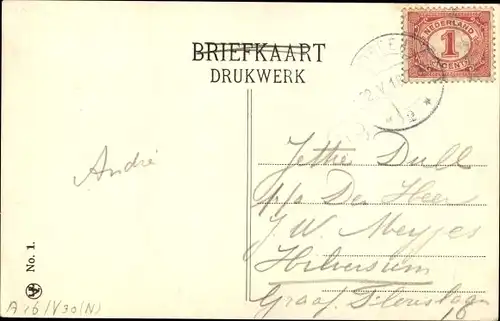 BRIEFKAART
DRUKWERK
NEDERLAND
1
CENT
André
Jethie Dull
p/a Den Heer
J. W. Meyjes
Hilversum
Graaf Florislaan
16
No. 1.
A 16/V30(N)